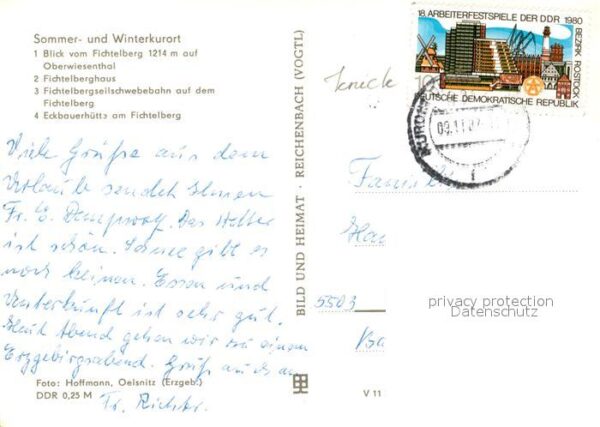 Sommer- und Winterkurort
1 Blick vom Fichtelberg 1214 m auf
Oberwiesenthal
2 Fichtelberghaus
3 Fichtelbergseilschwebebahn auf dem
Fichtelberg
4 Eckbauerhütte am Fichtelberg
Viele Grüße aus dem
Urlaube sendet Ihnen
Fr. E. Das Wetter
ist schön. Schnee gibt es
noch keinen. Essen und
Unterkunft ist sehr gut.
Heut Abend gehen wir zu einem
Erzgebirgsabend. Gruß auch an
Fr. Richter.
Foto: Hoffmann, Oelsnitz (Erzgeb.)
DDR 0,25 M
BILD UND HEIMAT · REICHENBACH (VOGTL)
V 11
Knicke
18. ARBEITERFESTSPIELE DER DDR 1980
BEZIRK ROSTOCK
10
DEUTSCHE DEMOKRATISCHE REPUBLIK
KURO
09.11.
Fami
5503
privacy protection
Datenschutz